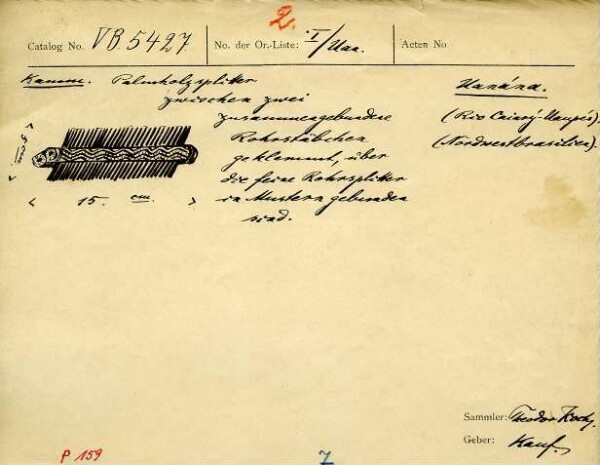 2.
Catalog No. VB 5427 No. der Or.-Liste: I/Uan. Acten No.
Kamm. Palmholzsplitter
zwischen zwei
zusammengebundene
Rohrstäbchen
geklemmt, über
die feine Rohrsplitter
in Mustern gebunden
sind.
Uanána.
(Rio Caiarý-Uaupés).
(Nordwestbrasilien).
< 5 cm >
< 15. cm. >
Sammler: Theodor Koch.
Geber: Kauf.
P 159
7